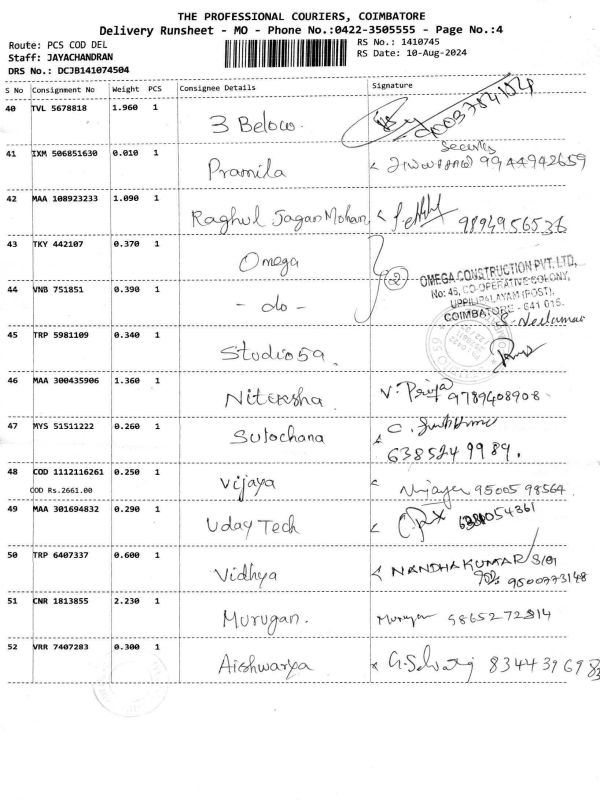 THE PROFESSIONAL COURIERS, COIMBATORE
Delivery Runsheet - MO - Phone No.:0422-3505555 - Page No.:4
Route: PCS COD DEL
RS No.: 1410745
Staff: JAYACHANDRAN
RS Date: 10-Aug-2024
DRS No.: DCJB141074504
S No Consignment No Weight PCS Consignee Details Signature
40 TVL 5678818 1.960 1 3 Below.
41 IXM 506851630 0.010 1 Pramila Security 9944942659
42 MAA 108923233 1.090 1 Raghul Jagan Mohan 9894956536
43 TKY 442107 0.370 1 Omega
2 OMEGA CONSTRUCTION PVT. LTD,
No: 45, CO-OPERATIVE COLONY,
UPPILIPALAYAM (POST),
COIMBATORE - 641 015.
44 VNB 751851 0.390 1 - do -
45 TRP 5981109 0.340 1 Studio59.
46 MAA 300435906 1.360 1 V. Priya 9789408908
47 MYS 51511222 0.260 1 Sulochana 6385249989.
48 COD 1112116261 0.250 1 Vijaya 9500598564
COD Rs.2661.00
49 MAA 301694832 0.290 1 Uday Tech
50 TRP 6407337 0.600 1 Vidhya NANDHAKUMAR S/O 9500773148
51 CNR 1813855 2.230 1 Murugan. Murugan 9865272814
52 VRR 7407283 0.300 1 Aishwarya G. Selvaraj